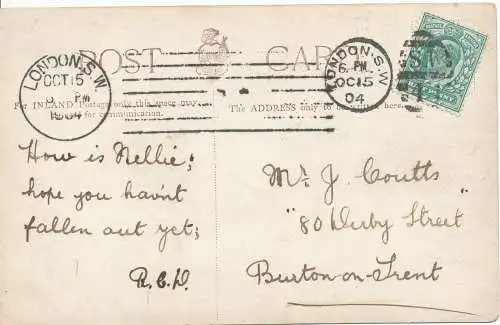 POST CARD
LONDON.S.W
OCT 15
PM
1904
LONDON.S.W
6. PM.
OC 15
04
For INLAND Postage only this space may
for communication.
The ADDRESS only to be written here.
How is Nellie;
hope you hav'nt
fallen out yet;
R.C.D.
Mr J. Coutts
"80 Derby Street"
Burton-on-Trent